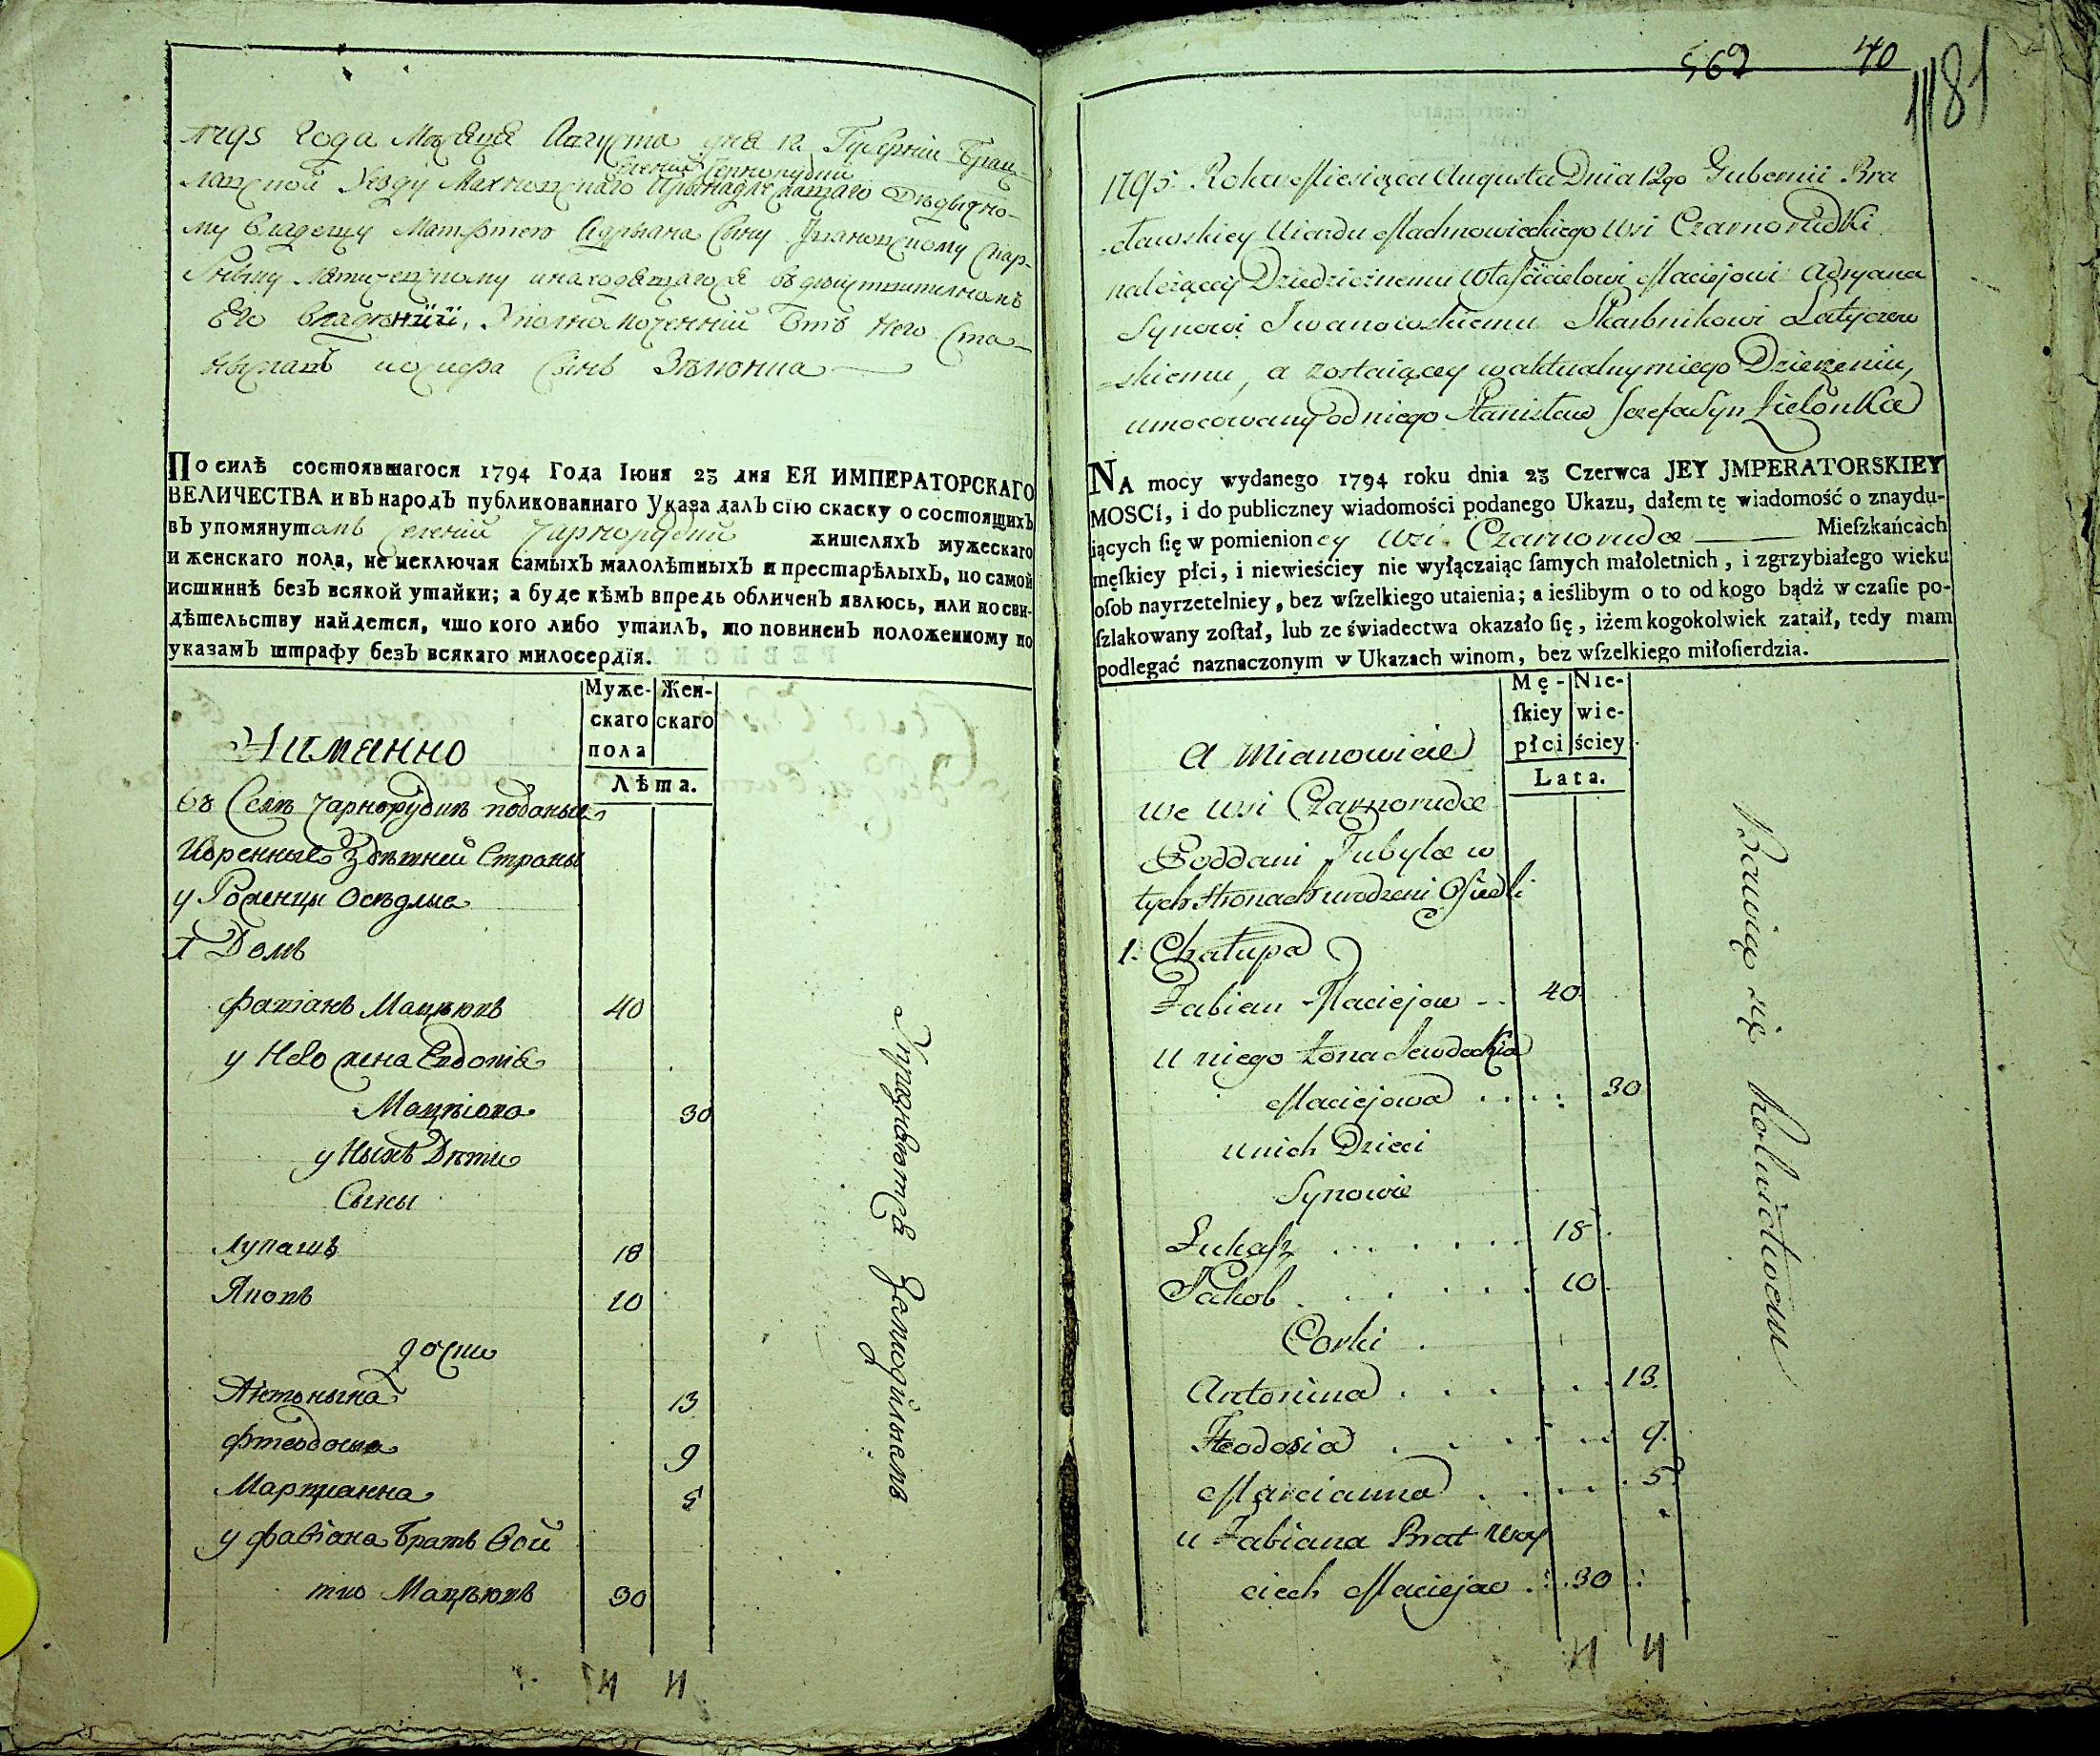 1795 Года Месяця Августа дня 12 Губерніи Брац-
лавской Уезду Махновскаго Селенія Чернорудки Принадлежащаго Дедично-
му Владелцу Матфтею Адрыана Сыну Ивановскому Скар-
бныку Лятичевскому и находящагося въ дѣиствителномъ
Его владѣніи, Уполномоченній Отъ Него Ста-
ныславъ иосифа Сынъ Зѣлюнка
По силѣ состоявшагося 1794 Года Іюня 23 дня ЕЯ ИМПЕРАТОРСКАГО
ВЕЛИЧЕСТВА и въ народъ публикованнаго Указа далъ сію скаску о состоящихъ
въ упомянутомъ Селеніи Чарнорудки жителяхъ мужескаго
и женскаго пола, не исключая самыхъ малолѣтныхъ и престарѣлыхъ, по самой
истиннѣ безъ всякой утайки; а буде кѣмъ впредь обличенъ явлюсь, или по сви-
дѣтельству найдется, что кого либо утаилъ, то повиненъ положенному по
указамъ штрафу безъ всякаго милосердія.
Муже- Жен-
скаго скаго
пола
Лѣта.
Именно
въ Селѣ Чарнорудкѣ поданые
Коренные Здѣшней Страны
уроженцы оседлые
1 Домъ
Фавіанъ Мацѣюкъ 40
у Него жена Евдокія
Мацѣюкова 30
у Ныхъ Дѣти
Сыны
Лукашъ 18
Якопъ 10
дочки
Антонына 13
Фтеодосия 9
Марцианна 5
у Фавіана братъ Вой
тко Мацѣюкъ 30
Упражняются Земледѣлиемъ
569 40
1181
1795. Roku Miesiąca Augusta Dnia 12go Gubernii Bra
cławskiey Uiazdu Machnowieckiego Wsi Czarnorudki
należącey Dziedzicznemu Właścicielowi Maciejowi Adryana
Synowi Iwanowskiemu Skarbnikowi Latyczew
skiemu, a zostaiącey w aktualnym iego Dzierżeniu,
umocowany od niego Stanisław Jozefa Syn Zielonka
NA mocy wydanego 1794 roku dnia 23 Czerwca JEY JMPERATORSKIEY
MOSCI, i do publiczney wiadomości podanego Ukazu, dałem tę wiadomość o znaydu-
iących ſię w pomienioney Wsi Czarnorudce Mieſzkańcach
męſkiey płci, i niewieściey nie wyłączaiąc ſamych małoletnich, i zgrzybiałego wieku
oſob nayrzetelniey, bez wſzelkiego utaienia; a ieślibym o to od kogo bądź w czaſie po-
ſzlakowany zoſtał, lub ze świadectwa okazało ſię, iżem kogokolwiek zataił, tedy mam
podlegać naznaczonym w Ukazach winom, bez wſzelkiego miłoſierdzia.
Mę- Nie-
ſkiey wie-
płci ściey
Lata.
A Mianowicie
we Wsi Czarnorudce
Poddani Tubylce w
tych stronach urodzeni Osiedli
1. Chałupa
Fabian Maciejow 40
U niego Żona Jewdockia
Maciejowa 30
u nich Dzieci
Synowie
Łukasz 18
Jakob 10
Corki
Antonina 13
Feodosia 9
Marcianna 5
u Fabiana Brat Woy
ciech Maciejow 30
Bawią się Rolnictwem